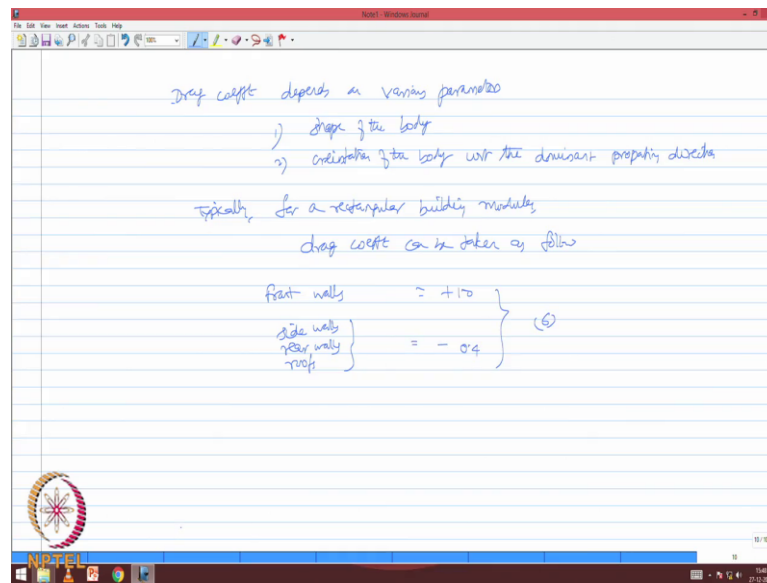 Note1 - Windows Journal
File Edit View Insert Actions Tools Help
Drag coefft depends on various parameters
1) shape of the body
2) orientation of the body wrt the dominant propating direction
Typically, for a rectangular building modules,
drag coefft can be taken as follow
front walls = +1.0
side walls
rear walls = - 0.4 (6)
roofs
NPTEL
10/10
18